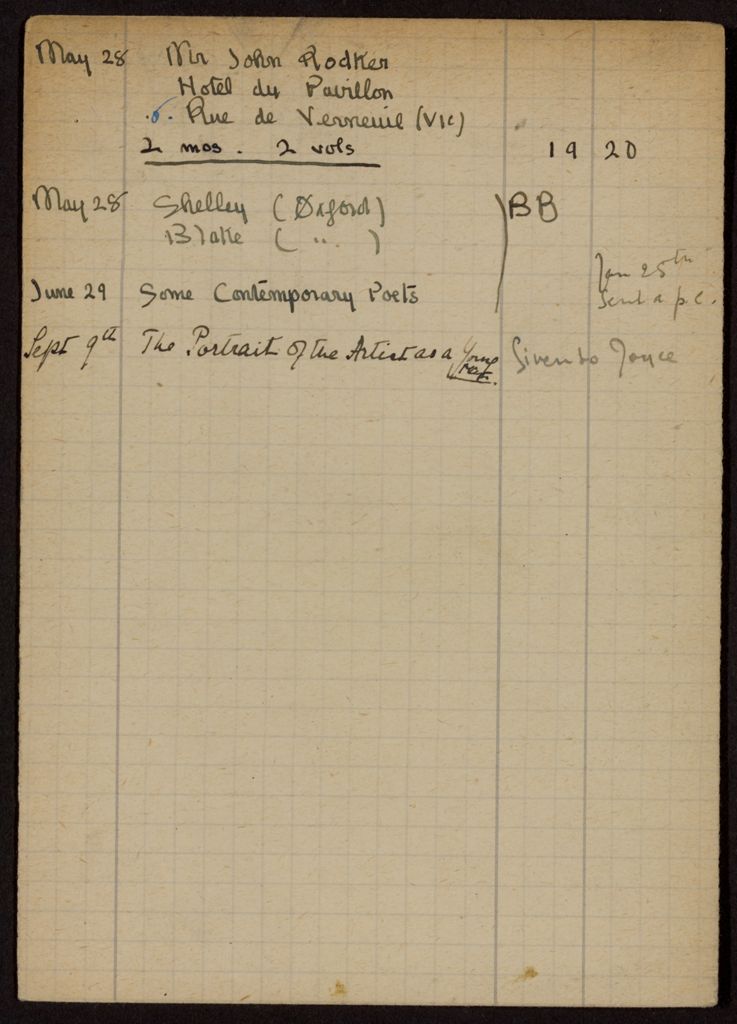 May 28 Mr John Rodker
Hotel du Pavillon
6. Rue de Verneuil (VIe)
2 mos. 2 vols
19 20
May 28 Shelley (Oxford) BB
Blake ( " )
Jan 25th
Sent a p.c.
June 29 Some Contemporary Poets
Sept 9th The Portrait of the Artist as a Young Man. Given to Joyce